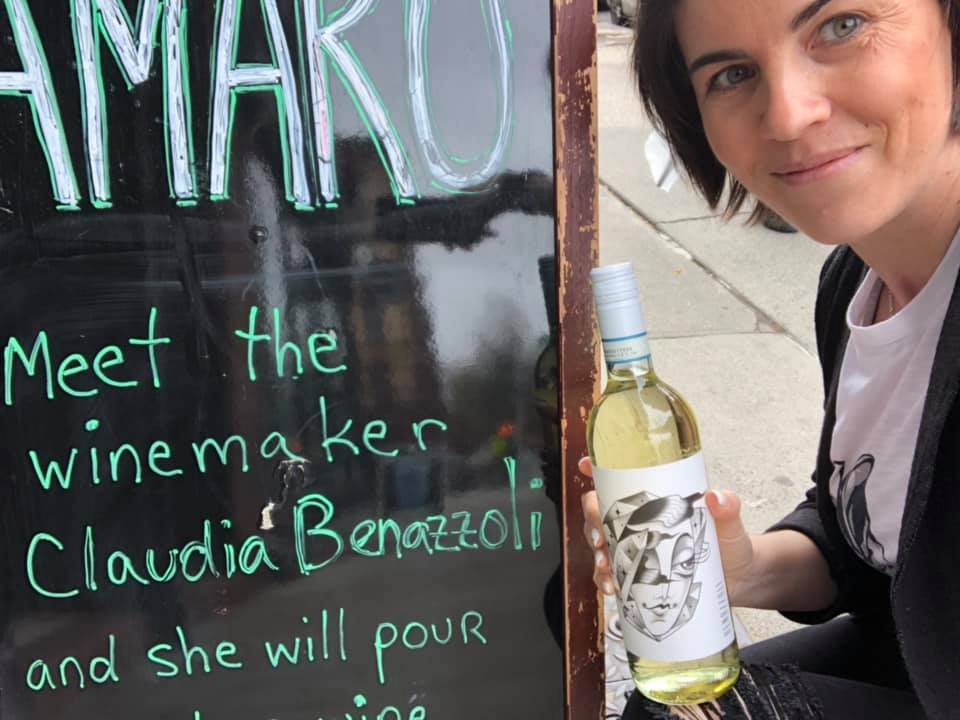 AMARO
Meet the
winemaker
Claudia Benazzoli
and she will pour
wine